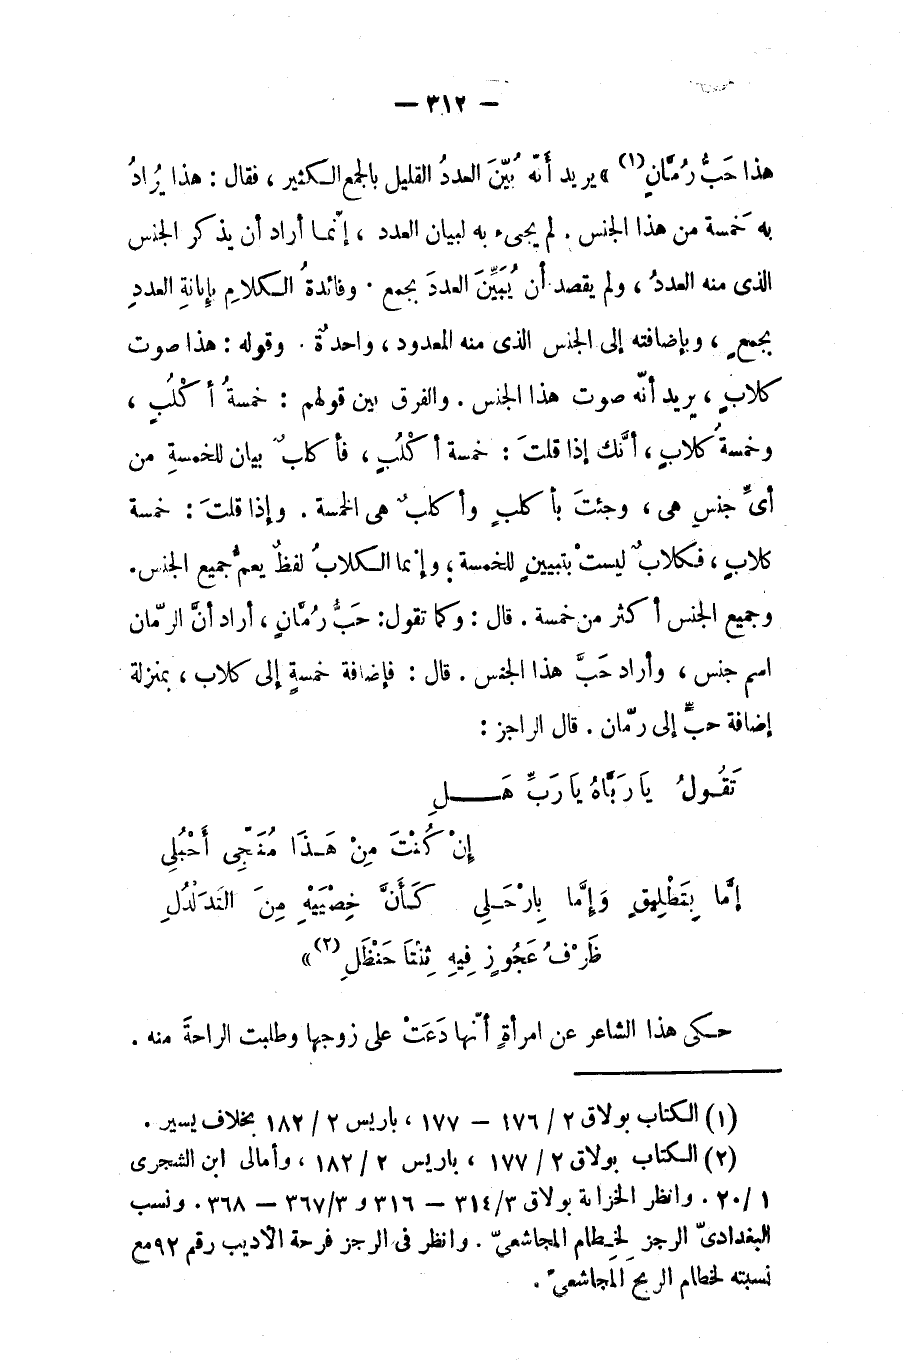 — ٣١٢ —
هذا حَبُّ رُمَّانٍ(١) » يريد أنّه بُيّنَ العددُ القليل بالجمع الكثير ، فقال : هذا يُرادُ
به خَمسة من هذا الجنس . لم يجىء به لبيان العدد ، إنّما أراد أن يذكر الجنس
الذى منه العددُ ، ولم يقصد أن يُبَيِّنَ العددَ بجمع . وفائدةُ الكلامِ بإبانةِ العددِ
بجمعٍ ، وبإضافته إلى الجنس الذى منه المعدود ، واحدةٌ . وقوله : هذا صوت
كلابٍ ، يريد أنّه صوت هذا الجنس . والفرق بين قولهم : خمسةُ أكْلُبٍ ،
وخمسةُ كلابٍ ، أنَّك إذا قلتَ : خمسة أكْلُبٍ ، فأكلبٌ بيان للخمسةِ من
أىِّ جنسٍ هى ، وجئتَ بأكلبٍ وأكلبٌ هى الخمسة . وإذا قلتَ : خمسة
كلابٍ ، فكلابٌ ليستْ بتبيينٍ للخمسة ؛ وإنما الكلابُ لفظٌ يعمُّ جميع الجنس .
وجميع الجنس أكثر من خمسة . قال : وكما تقول : حَبُّ رُمَّانٍ ، أراد أنَّ الرّمان
اسم جنس ، وأراد حَبَّ هذا الجنس . قال : فإضافة خمسةٍ إلى كلاب ، بمنزلة
إضافة حبٍّ إلى رمّان . قال الراجز :
تَقُولُ يَا رَبَّاهُ يَا رَبِّ هَلِ
إِنْ كُنْتَ مِنْ هَذَا مُنَجِّى أَحْبُلِى
إِمَّا بِتَطْلِيقٍ وَإِمَّا بِارْحَلِى كَأَنَّ خِصْيَيْهِ مِنَ التَدَلْدُلِ
ظَرْفُ عَجُوزٍ فِيهِ ثِنْتَا حَنْظَلِ(٢) »
حكى هذا الشاعر عن امرأةٍ أنّها دَعَتْ على زوجها وطلبت الراحةَ منه .
(١) الكتاب بولاق ٢ / ١٧٦ – ١٧٧ ، باريس ٢ / ١٨٢ بخلاف يسير .
(٢) الكتاب بولاق ٢ / ١٧٧ ، باريس ٢ / ١٨٢ ، وأمالى ابن الشجرى
١ / ٢٠ . وانظر الخزانة بولاق ٣ / ٣١٤ – ٣١٦ و ٣ / ٣٦٧ – ٣٦٨ . ونسب
البغدادىّ الرجز لِخِطام المجاشعىّ . وانظر فى الرجز فرحة الأديب رقم ٩٢ مع
نسبته لخطام الريح المجاشعىّ .